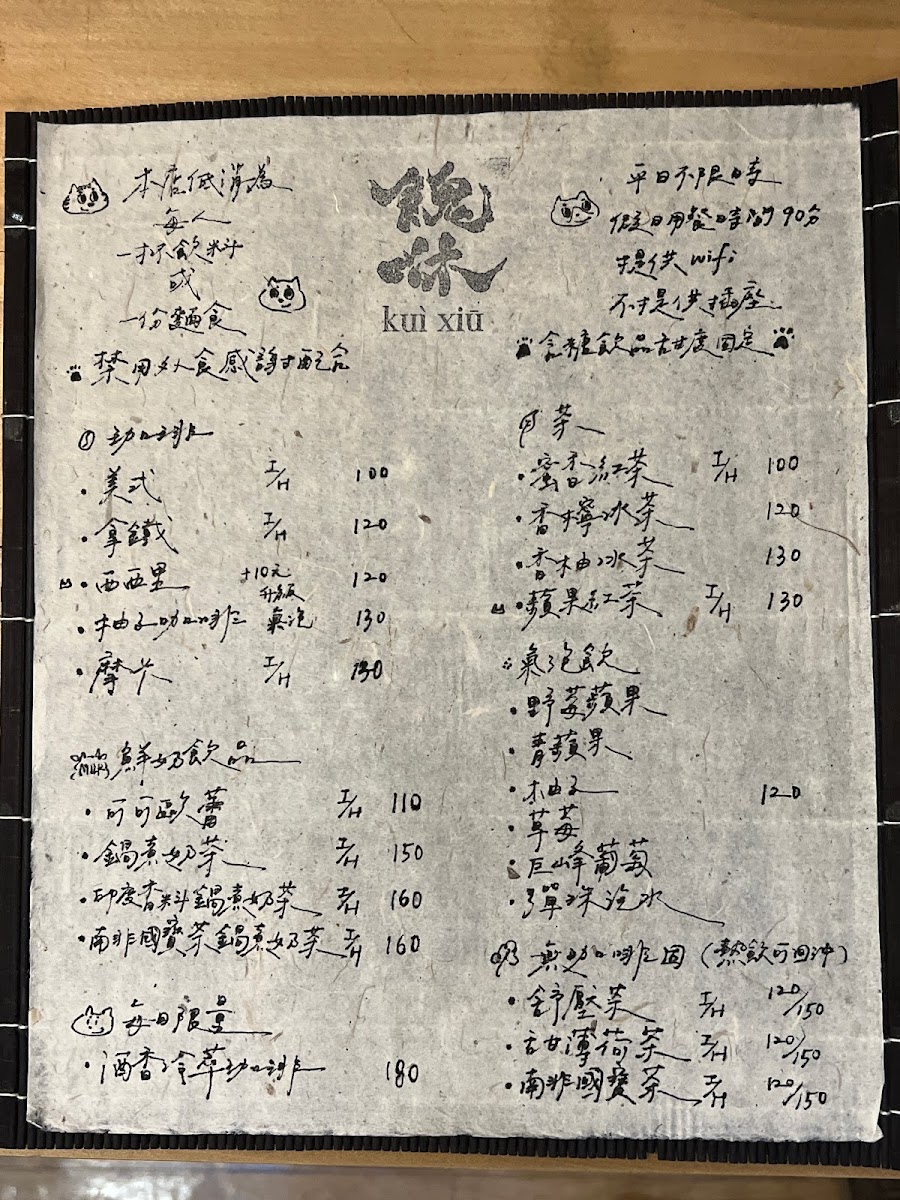 本店低消為
每人
一杯飲料
或
一份麵食
禁用外食感謝配合
kuì xiū
平日不限時
假日用餐時間90分
提供wifi
不提供插座
含糖飲品甜度固定
咖啡
美式 I/H 100
拿鐵 I/H 120
西西里 +10元升級 120
柚子咖啡 氣泡 130
摩卡 I/H 130
MILK 鮮奶飲品
可可歐蕾 I/H 110
鍋煮奶茶 I/H 150
印度香料鍋煮奶茶 I/H 160
南非國寶茶鍋煮奶茶 I/H 160
每日限量
酒香冷萃咖啡 180
茶
蜜香紅茶 I/H 100
香檸冰茶 120
香柚冰茶 130
蘋果紅茶 I/H 130
氣泡飲
野莓蘋果
青蘋果
柚子 120
草莓
巨峰葡萄
彈珠汽水
無咖啡因(熱飲可回沖)
舒壓茶 I/H 120/150
甜薄荷茶 I/H 120/150
南非國寶茶 I/H 120/150